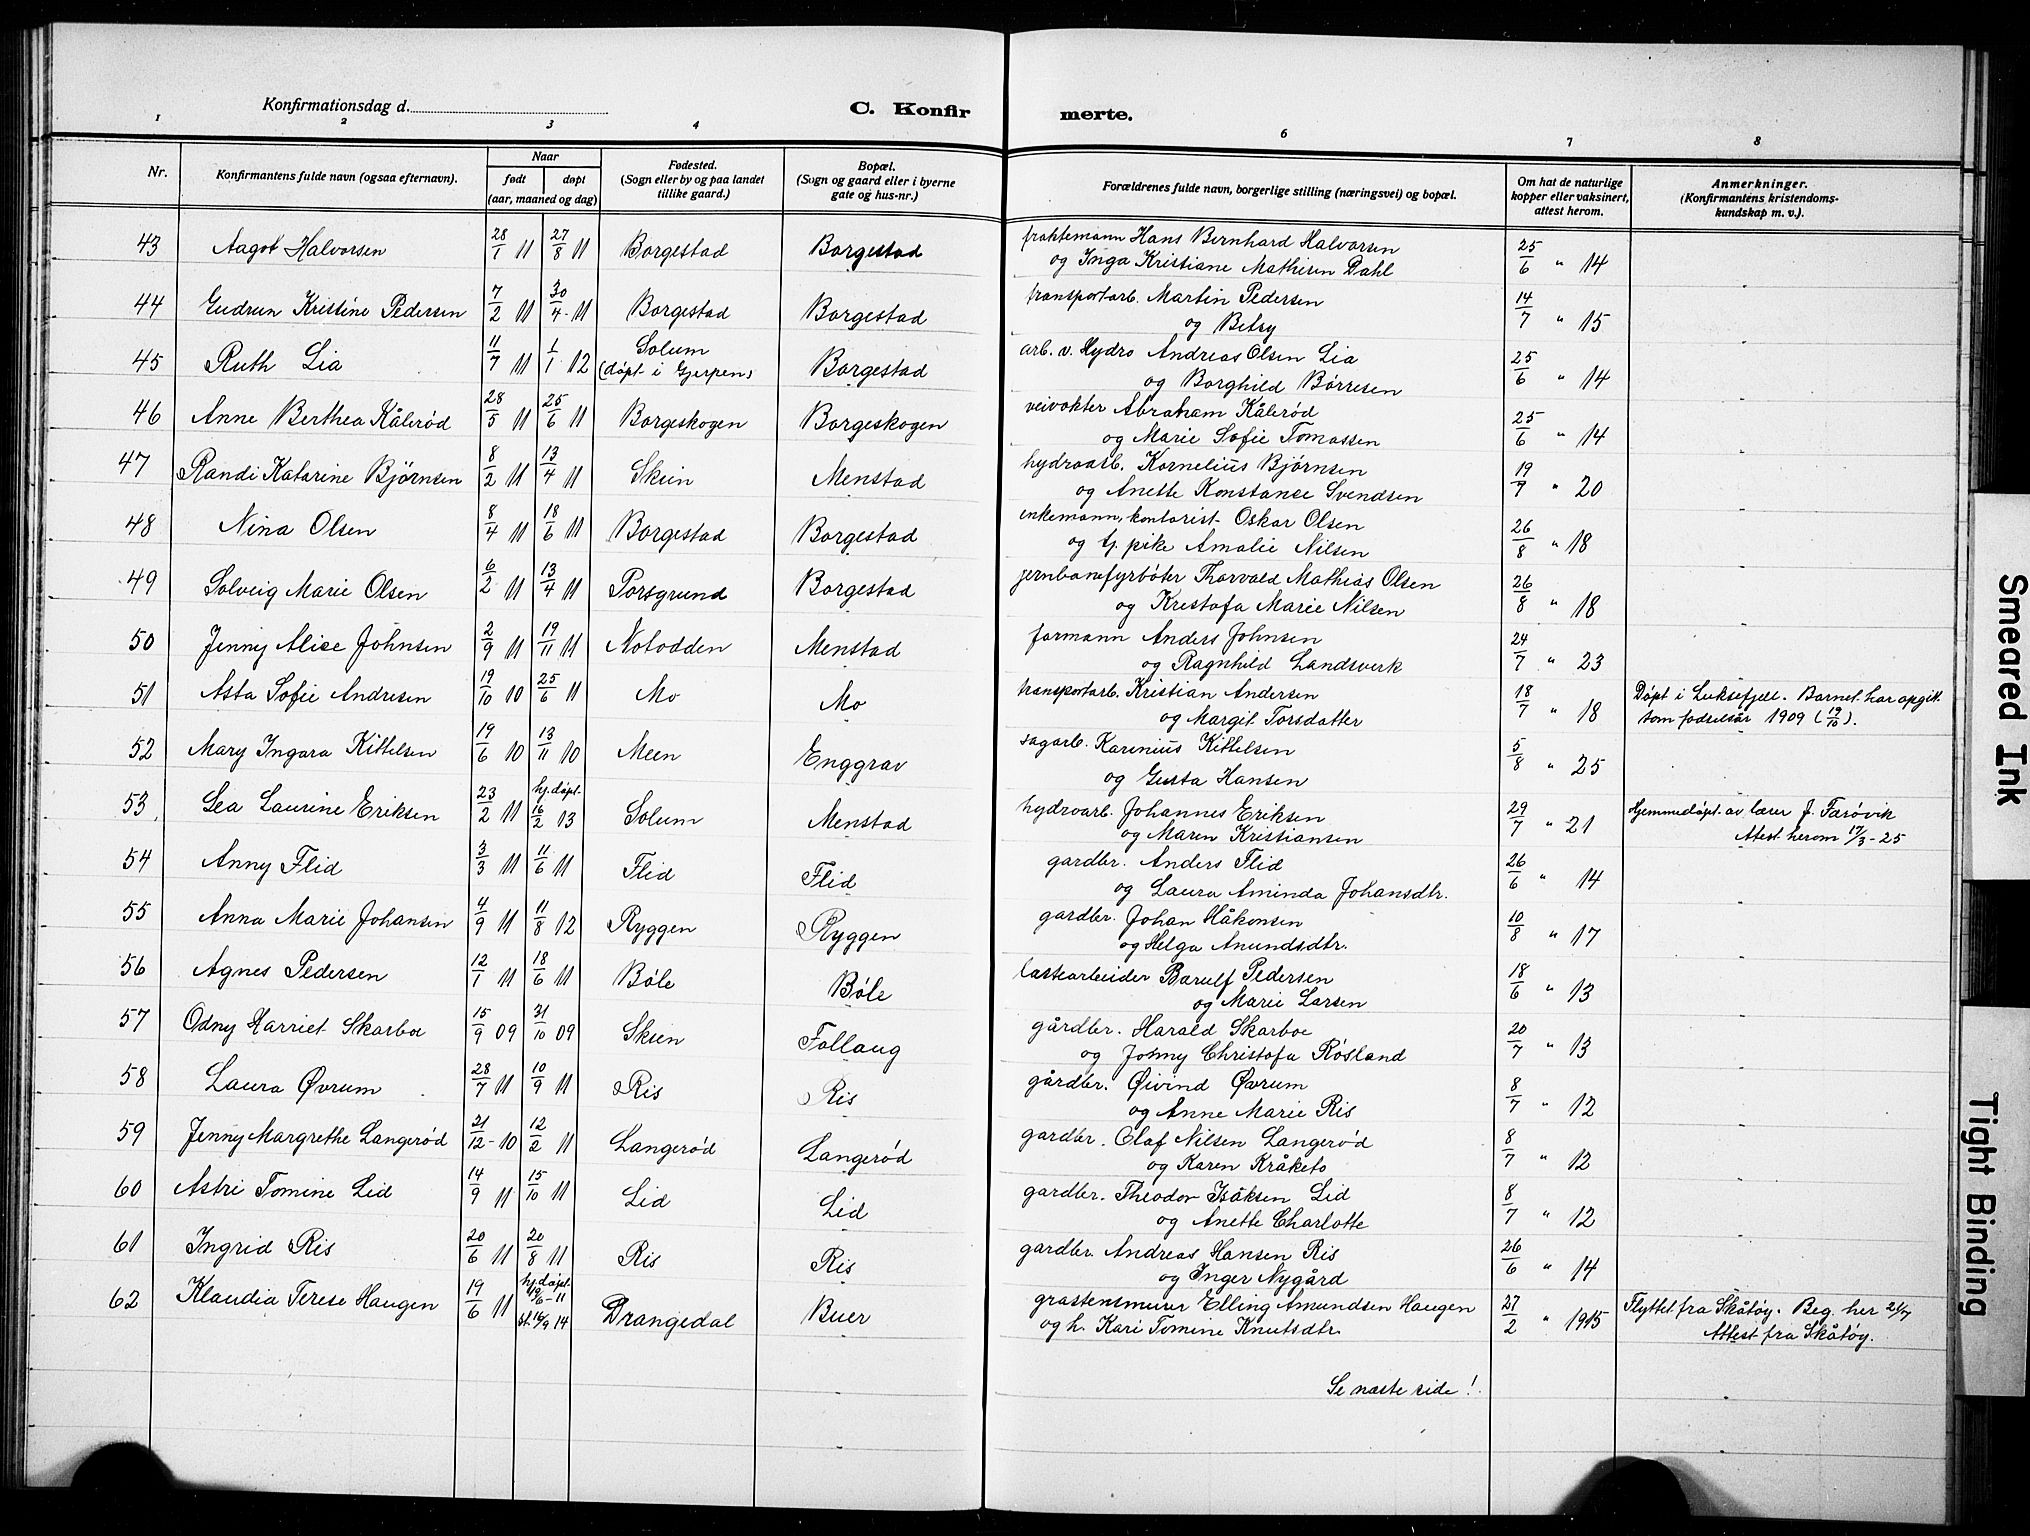 Konfirmationsdag d.
C. Konfirmerte.
1 2 3 4 6 7 8
Nr.
Konfirmantens fulde navn (ogsaa efternavn).
Naar
født
døpt
(aar, maaned og dag)
Fødested.
(Sogn eller by og paa landet
tillike gaard.)
Bopæl.
(Sogn og gaard eller i byerne
gate og hus-nr.)
Forældrenes fulde navn, borgerlige stilling (næringsvei) og bopæl.
Om hat de naturlige
kopper eller vaksinert,
attest herom.
Anmerkninger.
(Konfirmantens kristendoms-
kundskap m. v.).
43 Aagot Halvorsen 28/1 11 27/8 11 Borgestad Borgestad fraktemann Hans Bernhard Halvorsen 25/6 " 14
og Inga Kristiane Mathisen Dahl
44 Gudrun Kristine Pedersen 7/2 11 30/4 11 Borgestad Borgestad transportarb. Martin Pedersen 14/7 " 15
og Betsy
45 Ruth Lia 11/7 11 1/1 12 Solum Borgestad arb. v. Hydro Andreas Olsen Lia 25/6 " 14
(døpt i Gjerpen) og Borghild Børresen
46 Anne Berthea Kålerød 28/5 11 25/6 11 Borgeskogen Borgeskogen veivokter Abraham Kålerød 25/6 " 14
og Marie Sofie Tomassen
47 Randi Katarine Bjørnsen 8/2 11 13/4 11 Skien Menstad hydroarb. Kornelius Bjørnsen 19/7 " 20
og Anette Konstanse Svendsen
48 Nina Olsen 8/4 11 18/6 11 Borgestad Borgestad enkemann, kontorist Oskar Olsen 26/8 " 18
og tj. pike Amalie Nilsen
49 Solveig Marie Olsen 6/2 11 13/4 11 Porsgrund Borgestad jernbanefyrbøter Thorvald Mathias Olsen 26/8 " 18
og Kristofa Marie Nilsen
50 Jenny Alice Johnsen 2/9 11 19/11 11 Notodden Menstad formann Anders Johnsen 24/7 " 23
og Ragnhild Landsverk
51 Asta Sofie Andresen 19/10 10 25/6 11 Mo Mo transportarb. Kristian Andersen 18/7 " 18 Døpt i Luksefjell. Barnet har opgit
og Margit Torsdatter som fødselsår 1909 (19/10).
52 Mary Ingara Kittelsen 19/6 10 13/11 10 Meen Enggrav sagarb. Karinius Kittelsen 5/8 " 25
og Gusta Hansen
53 Lea Laurine Eriksen 23/2 11 hj. døpt 16/2 13 Solum Menstad hydroarb. Johannes Eriksen 29/7 " 21 Hjemmedøpt av lærer J. Farøvik
og Maren Kristiansen Attest herom 17/3-25
54 Anny Flid 3/3 11 11/6 11 Flid Flid gardbr. Anders Flid 26/6 " 14
og Laura Aminda Johansdtr.
55 Anna Marie Johansen 4/9 11 11/8 12 Ryggen Ryggen gardbr. Johan Håkonsen 10/8 " 17
og Helga Anundsdtr.
56 Agnes Pedersen 12/1 11 18/6 11 Bøle Bøle lastearbeider Barulf Pedersen 18/6 " 13
og Marie Larsen
57 Odny Harriet Skarboe 15/9 09 31/10 09 Skien Follaug gårdbr. Harald Skarboe 20/7 " 13
og Johny Christofa Røsland
58 Laura Øvrum 28/7 11 10/9 11 Ris Ris gårdbr. Øivind Øvrum 8/7 " 12
og Anne Marie Ris
59 Jenny Margrethe Langerød 21/12-10 12/2 11 Langerød Langerød gardbr. Olaf Nilsen Langerød 8/7 " 12
og Karen Kråketo
60 Astri Tomine Lid 14/9 11 15/10 11 Lid Lid gardbr. Theodor Isåksen Lid 8/7 " 12
og Anette Charlotte
61 Ingrid Ris 20/6 11 20/8 11 Ris Ris gardbr. Andreas Hansen Ris 26/6 " 14
og Inger Nygård
62 Klaudia Terese Haugen 19/6 11 hj. døpt 19/6-11 Drangedal Buer gråstensmurer Elling Amundsen Haugen 27/2 " 1915 Flyttet fra Skåtøy. Beg. her 2/7
st. 14/9 14 og h. Kari Tomine Knutsdtr. Attest fra Skåtøy.
Se næste side!
Smeared Ink
Tight Binding